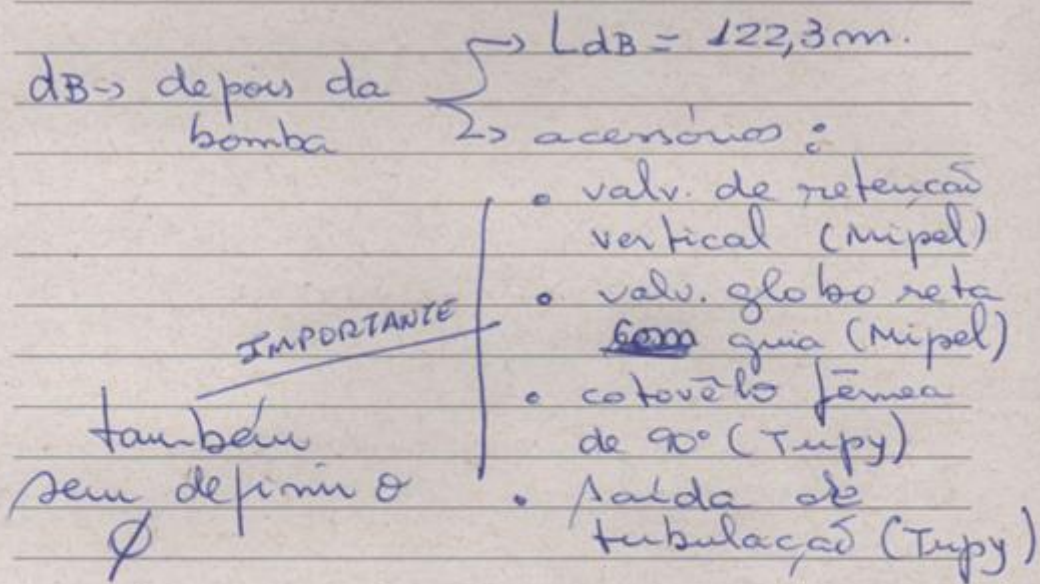 dB→ depois da bomba
→ LdB = 122,3m.
→ acessórios:
• valv. de retenção
vertical (Mipel)
• valv. globo reta
guia (Mipel)
• cotovêlo fêmea
de 90° (Tupy)
• saída de
tubulação (Tupy)
IMPORTANTE
também
sem definir o
Ø